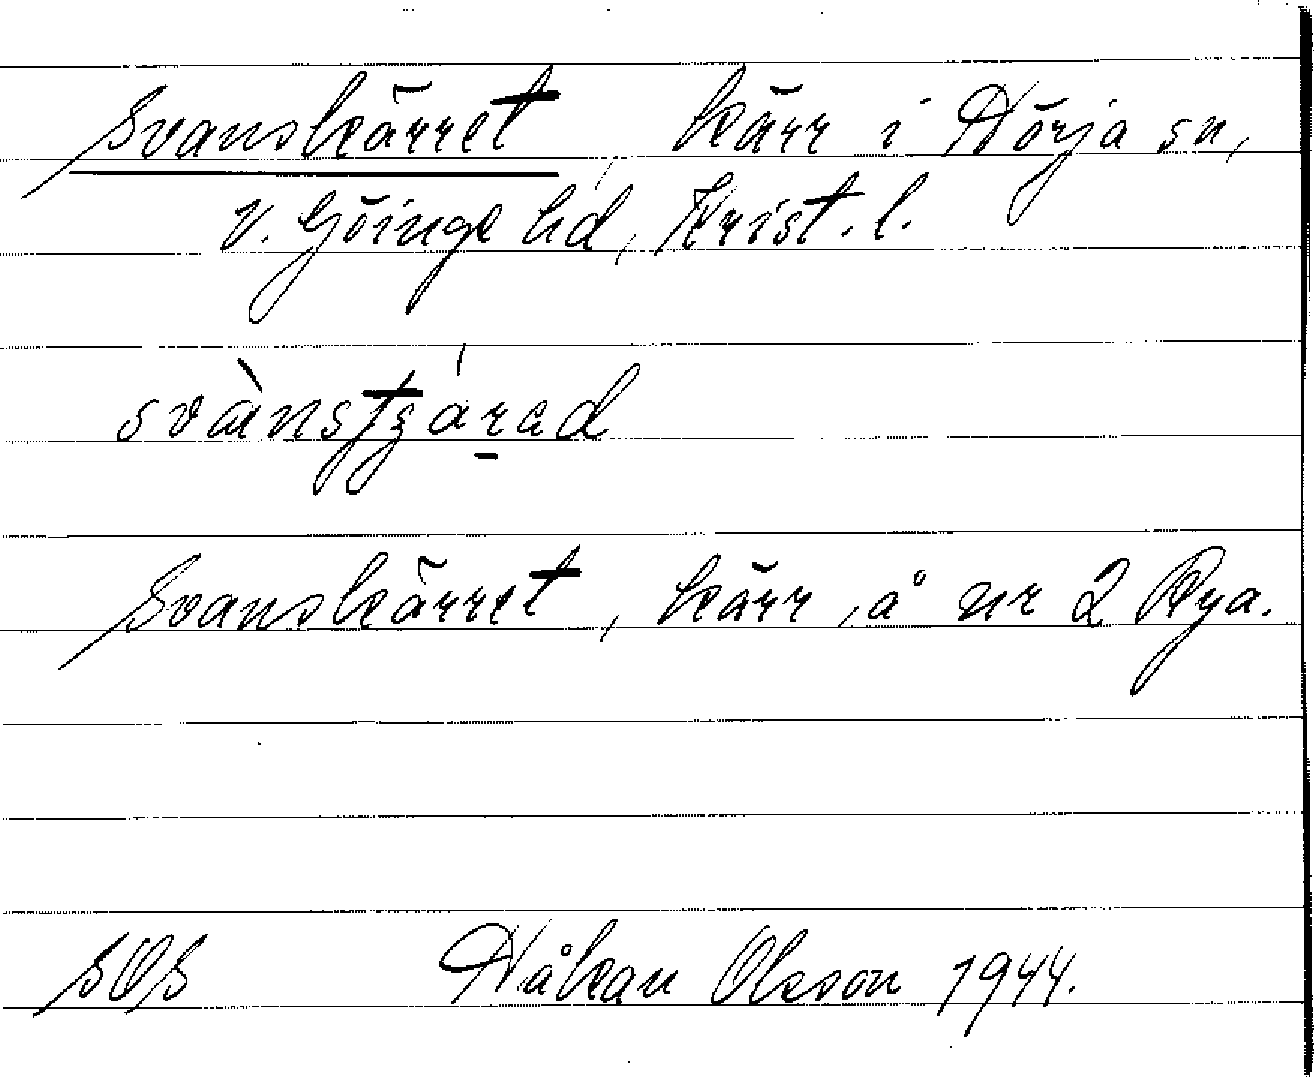 Svanskärret, kärr i Nörja sn,
V. Göinge hd, Krist. l.
Svanskärret, kärr, å nr 2 Rya.
SOS Håkan Olsson 1944.